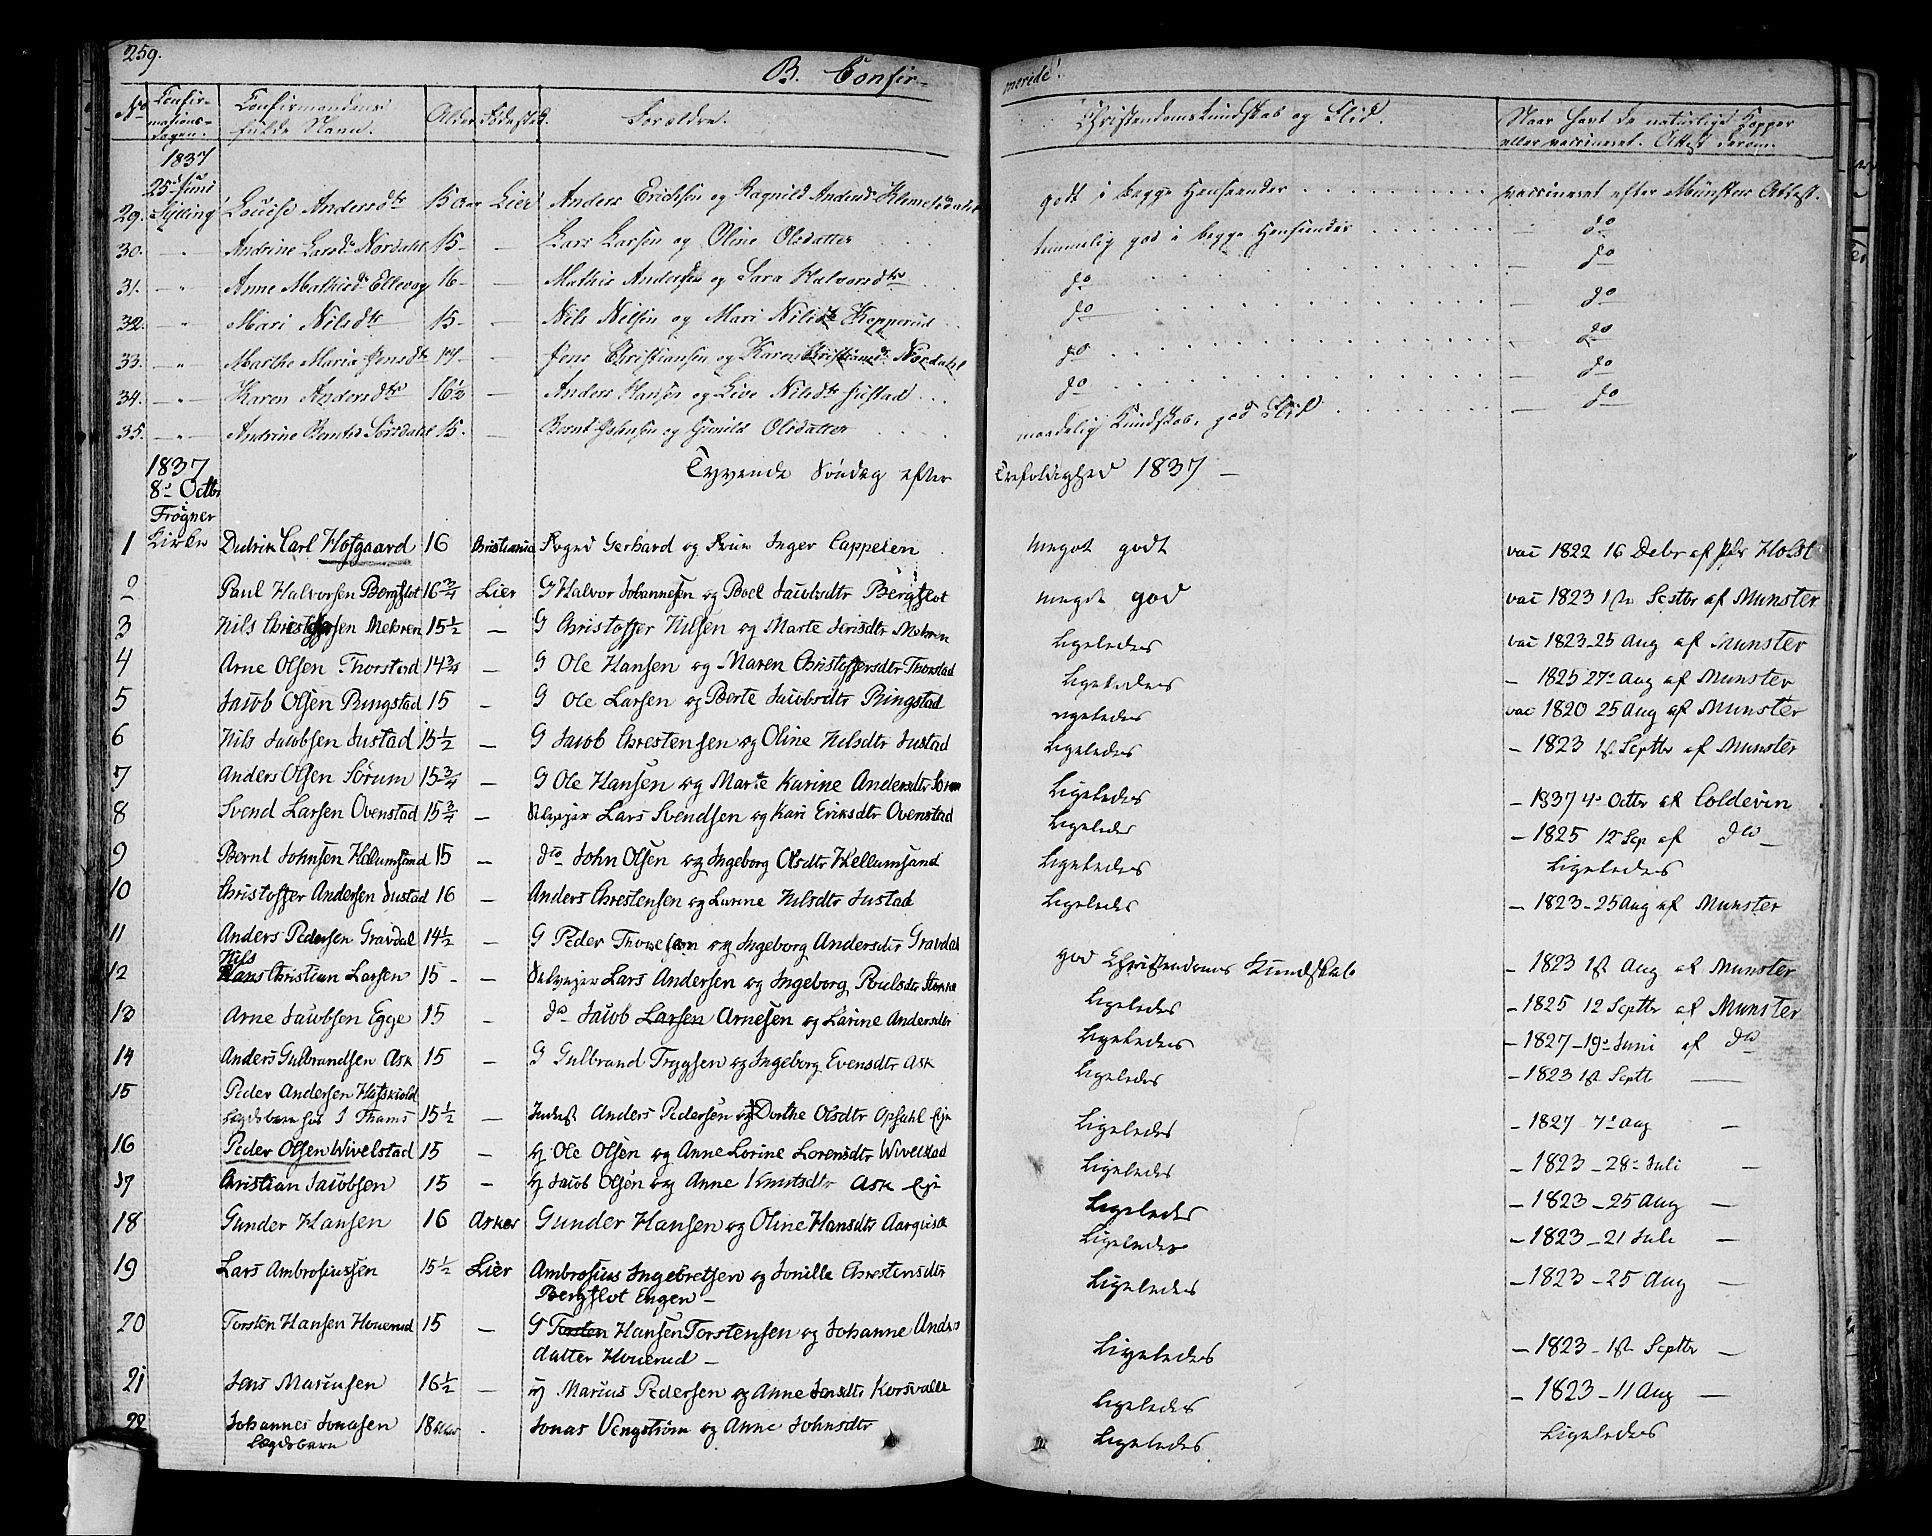 259.
B. Confir- merede!
No Confirmations-Dagen. Confirmandens fulde Navn. Alder Fødested. Forældre. Christendomskundskab og Flid. Naar havt de naturlige Kopper eller vaccineret. Attest derom.
1837
25 Juni
29. Sylling Lovise Andersdtr 15 Aar Lier Anders Erichsen og Ragnild Andersd. godt i begge Henseender vaccineret efter Münsters Attest.
30. -„- Andrine Larsd. Nordahl 15 - — Lars Larsen og Oline Olsdatter temmelig god i begge Henseender — do
31. -„- Anne Mathisd. Ellevog 16 - — Mathis Andersen og Sara Halvorsdtr do — do
32. -„- Mari Nilsdtr 15 - — Nils Nilsen og Mari Nilsdtr Kopperud do — do
33. -„- Marthe Maria Jensdtr 17 - — Jens Christiansen og Karen Christiansd. Nordahl do — do
34. -„- Karen Andersdtr 16½ — Anders Hansen og Live Nilsdtr Justad do — do
35. -„- Andrine Berntsd. Sørsdahl 15. — Bernt Johnsen og Gunild Olsdatter maadelig Kundskab, god Flid — do
1837
8de Octbr Tyvende Søndag efter Trefoldighed 1837 —
Frogner
1 Kirke Didrik Carl Hofgaard 16 Christiania Foged Gerhard og Frue Inger Cappelen meget godt vac 1822 16 Debr af Holst
2 Paul Halvorsen Bergflot 16¾ Lier G Halvor Johannesen og Boel Jacobsdtr Bergflot meget god vac 1823 1st Septbr af Munster
3 Nils Christoffersen Mehren 15½ — G Christoffer Nilsen og Marte Jensdtr Mehren Ligeledes vac 1823 - 25 Aug af Munster
4 Arne Olsen Thorstad 14¾ — G Ole Hansen og Maren Christoffersdtr Thorstad Ligeledes — 1825 27de Aug af Munster
5 Jacob Olsen Ringstad 15 — G Ole Larsen og Berte Jacobsdtr Ringstad Ligeledes vac 1820 25 Aug af Munster
6 Nils Jacobsen Justad 15½ — G Jacob Chrestensen og Oline Nilsdtr Justad Ligeledes — 1823 1st Septbr af Munster
7 Anders Olsen Sørum 15¾ — G Ole Hansen og Marte Karine Andersdtr Sørum Ligeledes — 1837 4de Octbr af Coldevin
8 Svend Larsen Ovenstad 15¾ — Selvejer Lars Svendsen og Kari Eriksdtr Ovenstad Ligeledes — 1825 12 Sep af do —
9 Bernt Johnsen Kellumsand 15 — do John Olsen og Ingeborg Olsdtr Kellumsand Ligeledes Ligeledes
10 Christoffer Andersen Justad 16 — Anders Chrestensen og Karine Nilsdtr Justad Ligeledes — 1823 - 25 Aug af Munster
11 Anders Pedersen Gravdal 14½ — G Peder Thoresen og Ingeborg Andersdtr Gravdal god Christendoms Kundskab — 1823 1st Aug af Munster
Nils
12 Hans Christian Larsen 15 - — Selvejer Lars Andersen og Ingeborg Poulsdtr Ligeledes — 1825 12 Septbr af Munster
13 Arne Jacobsen Egge 15 — do Jacob Larsen Arnesen og Karine Andersdtr Ligeledes — 1827 - 19de Juni af do
14 Anders Gulbrandsen Ask 15 — G Gulbrand Trygsen og Ingeborg Evensdtr Ask Ligeledes — 1823 1st Septbr —
15 Peder Andersen Hafskiold
Lægdsbarn hos J Thams 15½ — Inderst Anders Pedersen og Dorthe Olsdtr Opsahl Eje Ligeledes — 1827 7de Aug —
16 Peder Olsen Wivelstad 15 — Ole Olsen og Anne Lorine Lorensdtr Wivelstad Ligeledes — 1823 - 28de Juli —
17 Christian Jacobsen 15 — Jacob Olsen og Anne Knutsdtr Ask Eje Ligeledes — 1823 - 25 Aug —
18 Gunder Hansen 16 Asker Gunder Hansen og Oline Hansdtr Ligeledes — 1823 - 21 Juli —
19 Lars Ambrosiussen 15½ Lier Ambrosius Ingebretsen og Jonille Chrestensdtr Ligeledes — 1823 - 25 Aug —
Bergflot Engen —
20 Torsten Hansen Houerud 15 — G Torsten Hansen Torstensen og Johanne Anders Ligeledes — 1823 - 1st Septbr —
datter Houerud —
21 Jens Mariusen 16½ — Marius Pedersen og Anne Jensdtr Korsvalle Ligeledes — 1823 - 11 Aug —
22 Johannes Jonasen 18 Aar - Jonas Vengstrøm og Anne Johnsdtr Ligeledes Ligeledes
Lægdsbarn